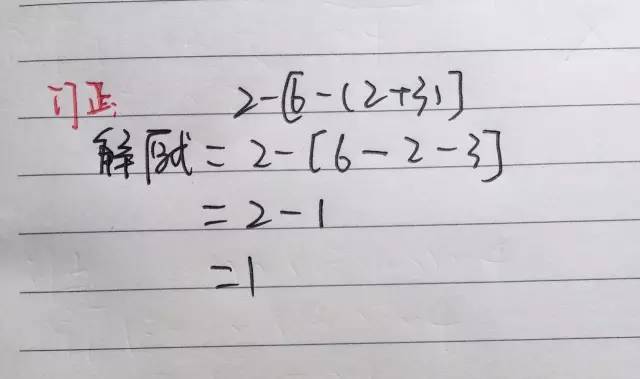 订正: 2-[6-(2+3)]
解原式=2-[6-2-3]
=2-1
=1